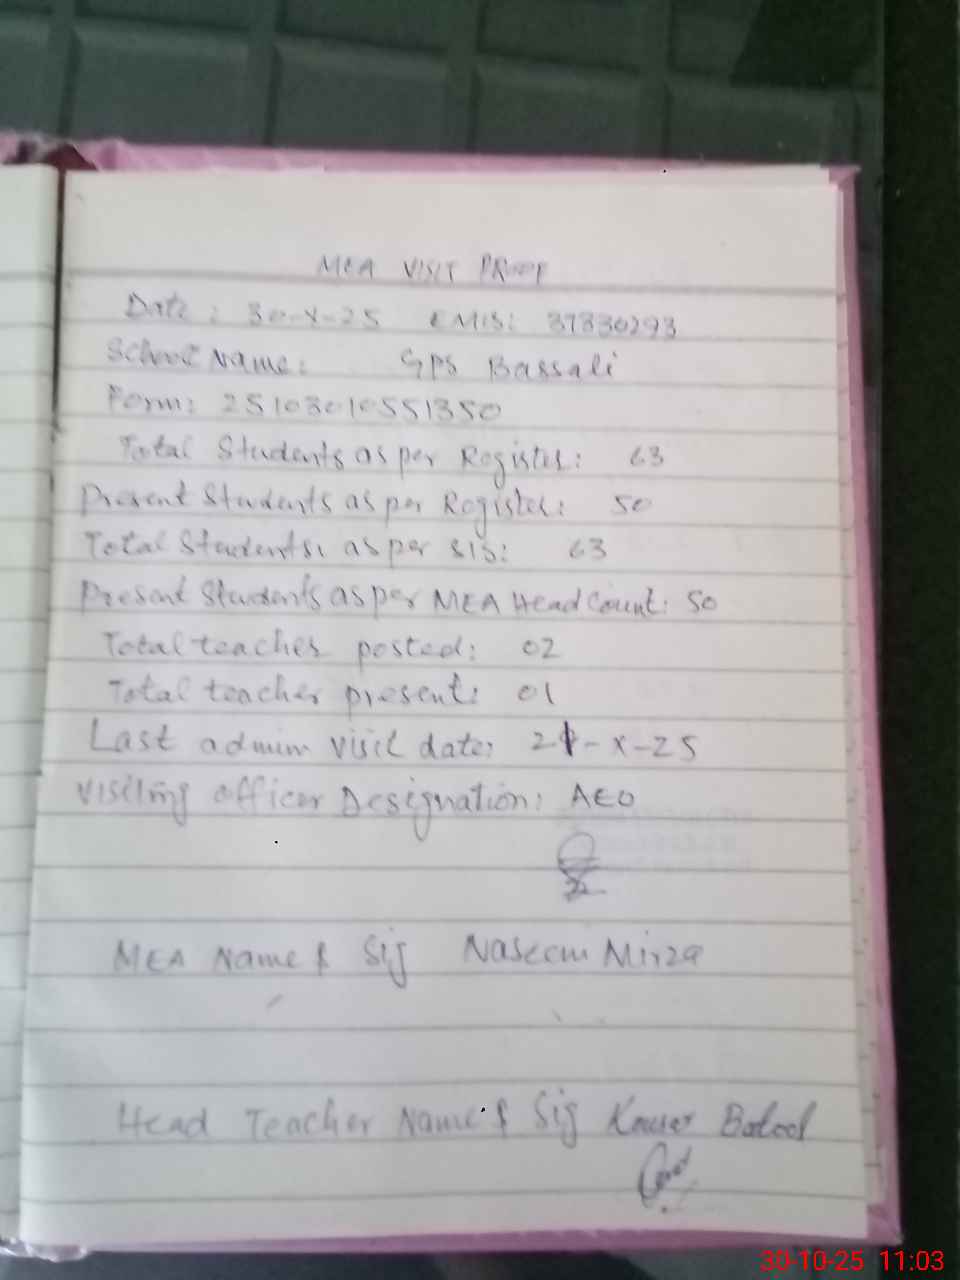 MEA VISIT PROOF
Date: 30-X-25 EMIS: 37330293
School Name: GPS Bassali
Form: 25103010551350
Total Students as per Register: 63
Present Students as per Register: 50
Total Students, as per SIS: 63
Present Students as per MEA Head Count: 50
Total teacher posted: 02
Total teacher present: 01
Last admin visit date: 21-X-25
Visiting officer Designation: AEO
MEA Name & Sig Naseem Mirza
Head Teacher Name & Sig Kauser Batool
30-10-25 11:03